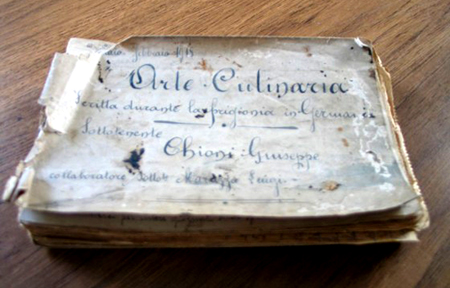 Arte Culinaria
Scritta durante la prigionia in Germania
Sottotenente
Chioni Giuseppe
collaboratore Sottot.